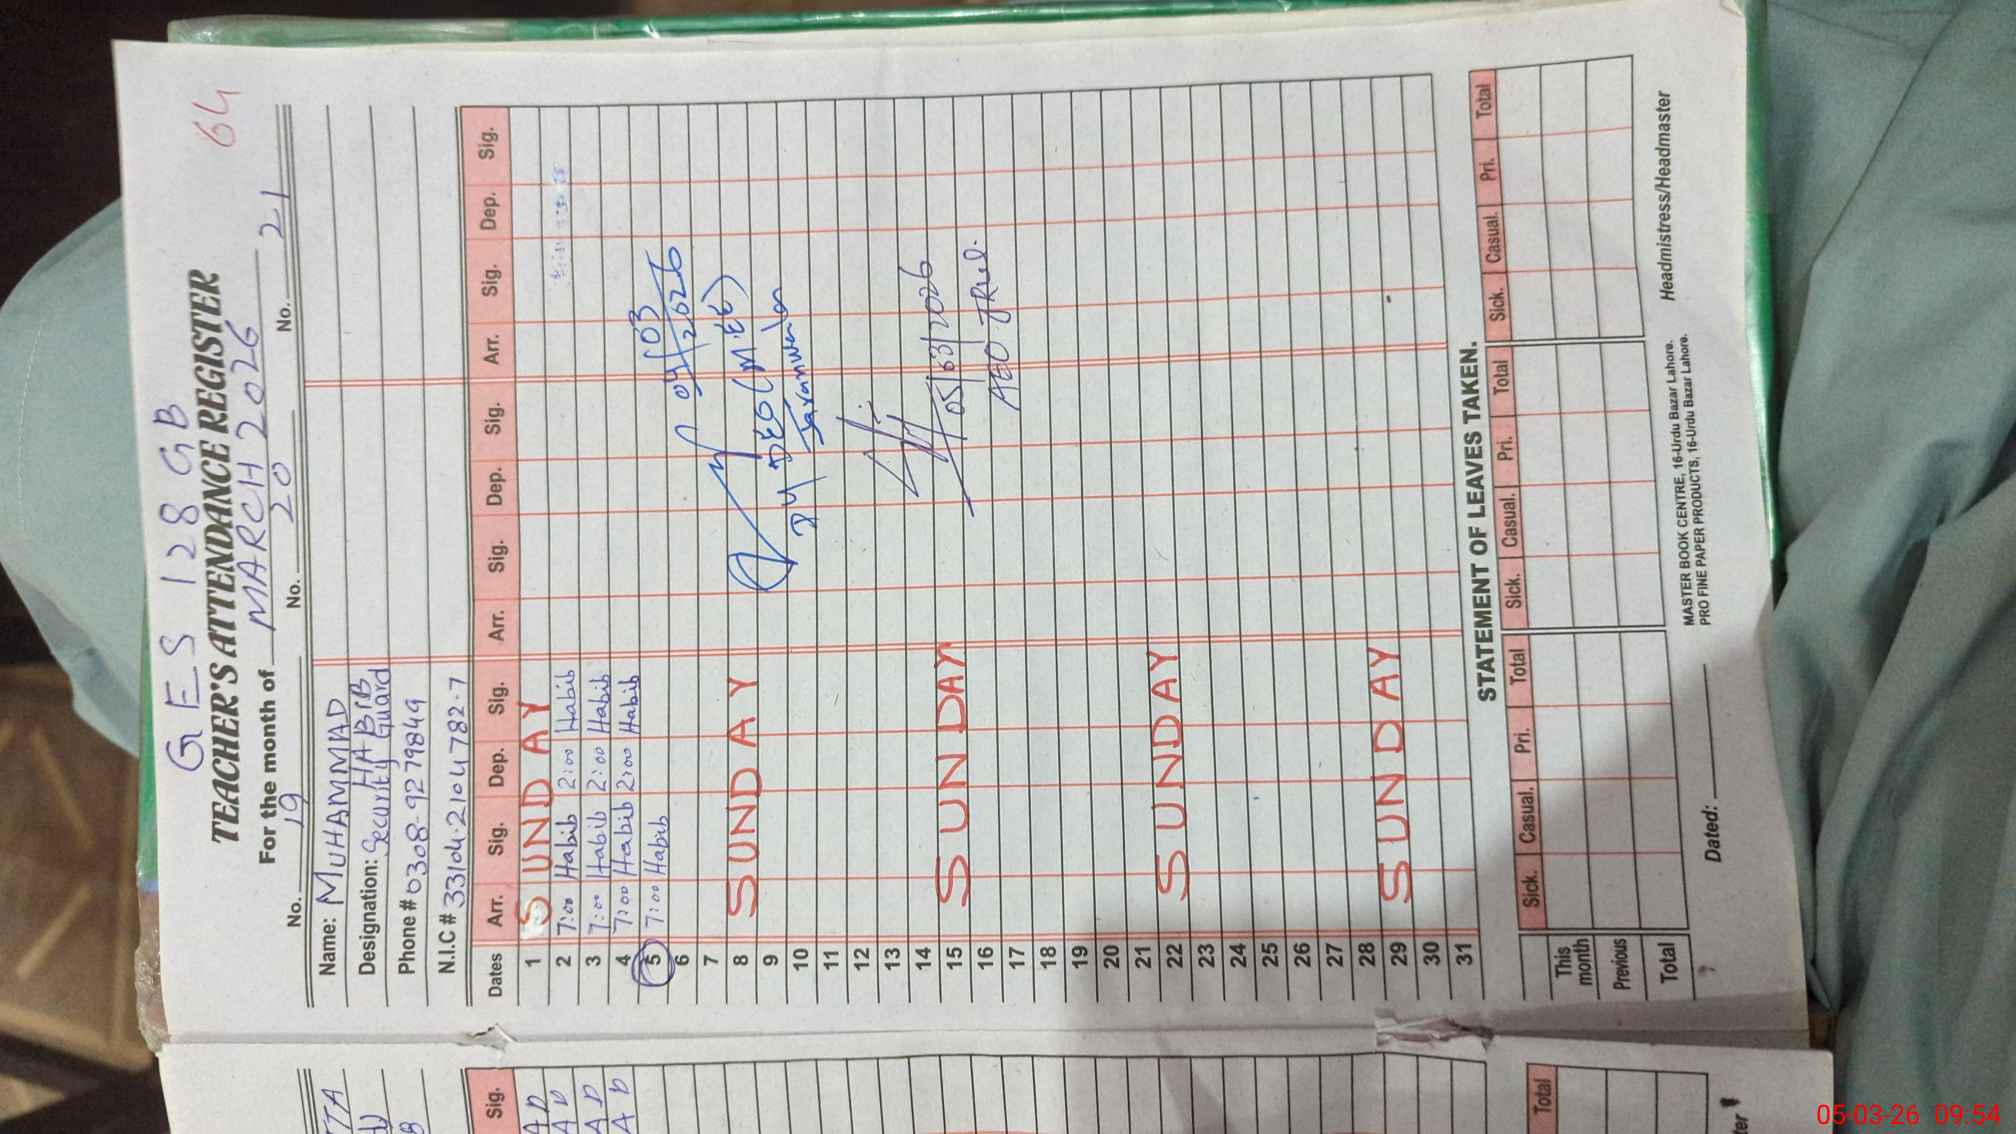 64
GES 128 GB
TEACHER'S ATTENDANCE REGISTER
For the month of MARCH 2026
No. 19 No. 20 No. 21
Name: MUHAMMAD HABIB
Designation: Security Guard
Phone # 0308-9279849
N.I.C # 33104-2104782-7
Dates Arr. Sig. Dep. Sig. Arr. Sig. Dep. Sig. Arr. Sig. Dep. Sig.
1 SUNDAY
2 7:00 Habib 2:00 Habib
3 7:00 Habib 2:00 Habib
4 7:00 Habib 2:00 Habib
5 7:00 Habib
04/03/2026
6
7
8 SUNDAY
DY DEO (M.EE)
9
Jaranwala
10
11
12
13
14
15 SUNDAY
05/03/2026
16
17
18
19
20
21
22 SUNDAY
23
24
25
26
27
28
29 SUNDAY
30
31
STATEMENT OF LEAVES TAKEN.
Sick. Casual. Pri. Total Sick. Casual. Pri. Total Sick. Casual. Pri. Total
This month
Previous
Total
Dated:
MASTER BOOK CENTRE, 16-Urdu Bazar Lahore.
PRO FINE PAPER PRODUCTS, 16-Urdu Bazar Lahore.
Headmistress/Headmaster
Sig.
A D
A D
A D
A D
Total
05-03-26 09:54